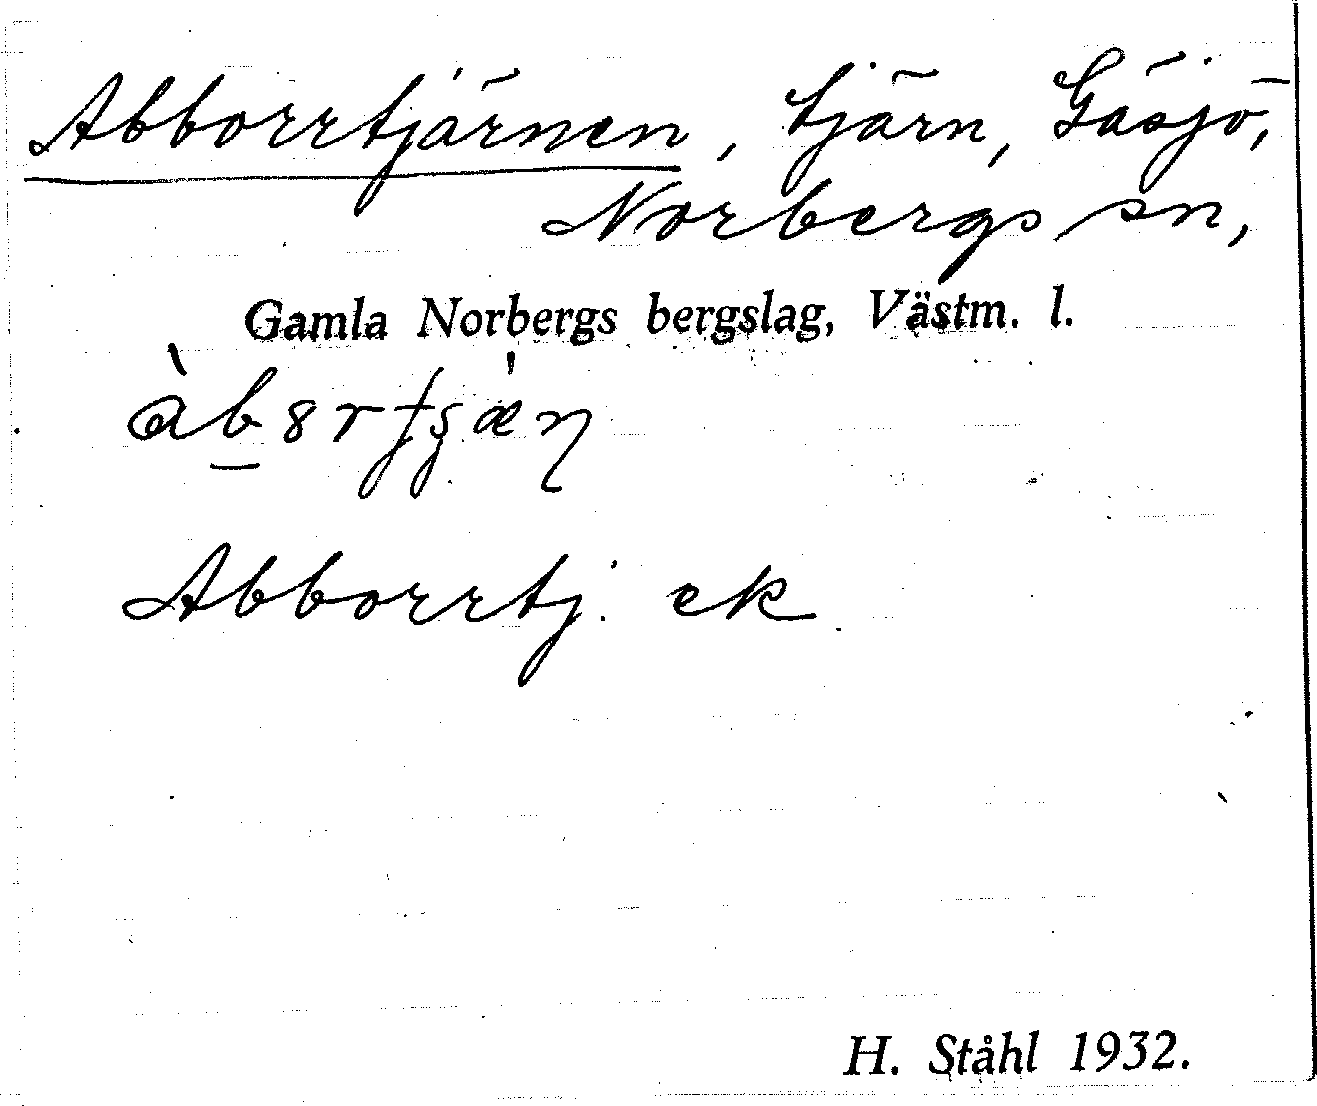 Abborrtjärnen, tjärn, Gäsjö,
Norbergs sn,
Gamla Norbergs bergslag, Västm. l.
Abborrtj. ek
H. Ståhl 1932.